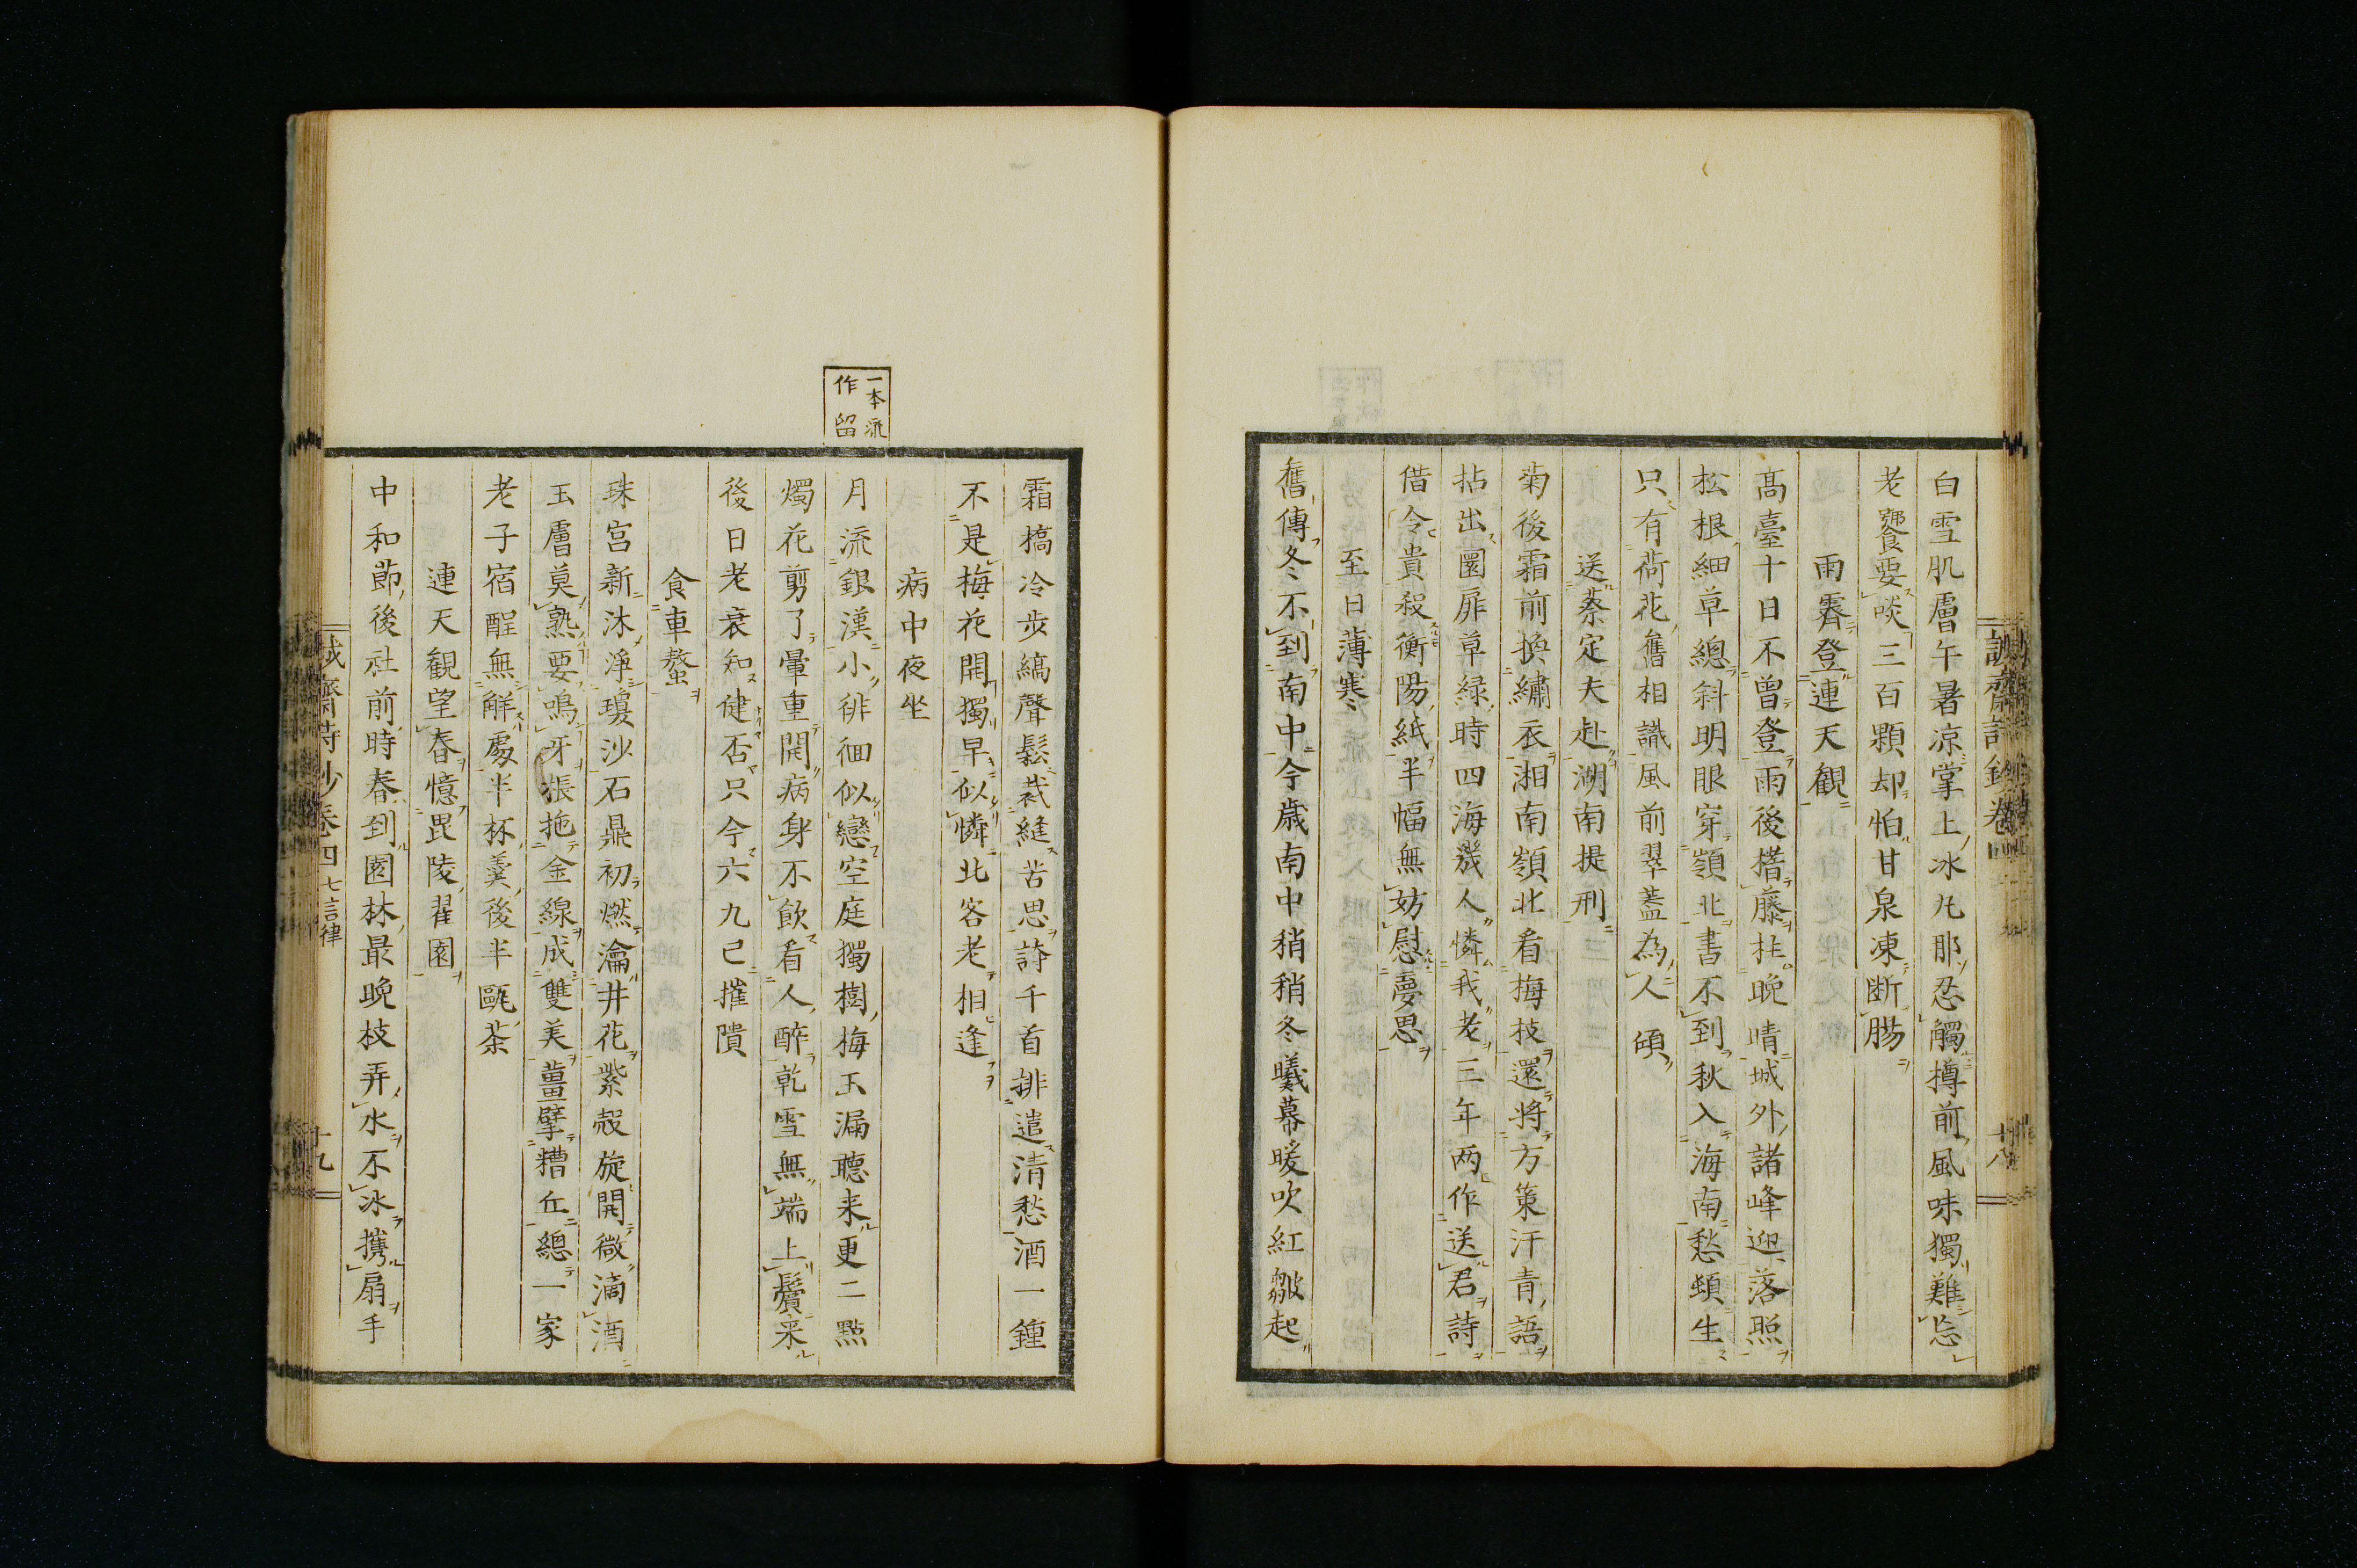 白雪肌膚午暑凉掌上冰丸那忍觸樽前風味獨難忘
老饕要啖三百顆却怕甘泉凍断腸
雨霽登連天觀
髙臺十日不曾登雨後搘藤拄晚晴城外諸峰迎落照
松根細草總斜明眼穿嶺北書不到秋入海南愁頓生
只有荷花舊相識風前翠蓋為人傾
送蔡定夫赴湖南提刑
菊後霜前換繡衣湘南嶺北看梅枝還將方策汗青語
拈出圜扉草緑時四海幾人憐我老三年两作送君詩
借令貴殺衡陽紙半幅無妨慰夢思
至日薄寒
舊傳冬不到南中今歳南中稍稍冬曦幕暖吹紅皺起
霜橋冷步縞聲鬆裁縫苦思詩千首排遣清愁酒一鍾
不是梅花開獨早似憐北客老相逢
病中夜坐
一本流
作留
月流銀漢小徘徊似戀空庭獨樹梅玉漏聴来更二點
燭花剪了暈重開病身不飲看人醉乾雪無端上鬢来
後日老衰知健否只今六九已摧隤
食車螯
珠宫新沐净瓊沙石鼎初燃瀹井花紫殻旋開微滴酒
玉膚莫熟要鳴牙棖拖金線成雙美薑擘糟丘總一家
老子宿酲無解處半杯羹後半甌茶
連天觀望春憶毘陵翟園
中和節後社前時春到園林最晚枝弄水不冰攜扇手
誠齋詩鈔卷四 七言律 十九